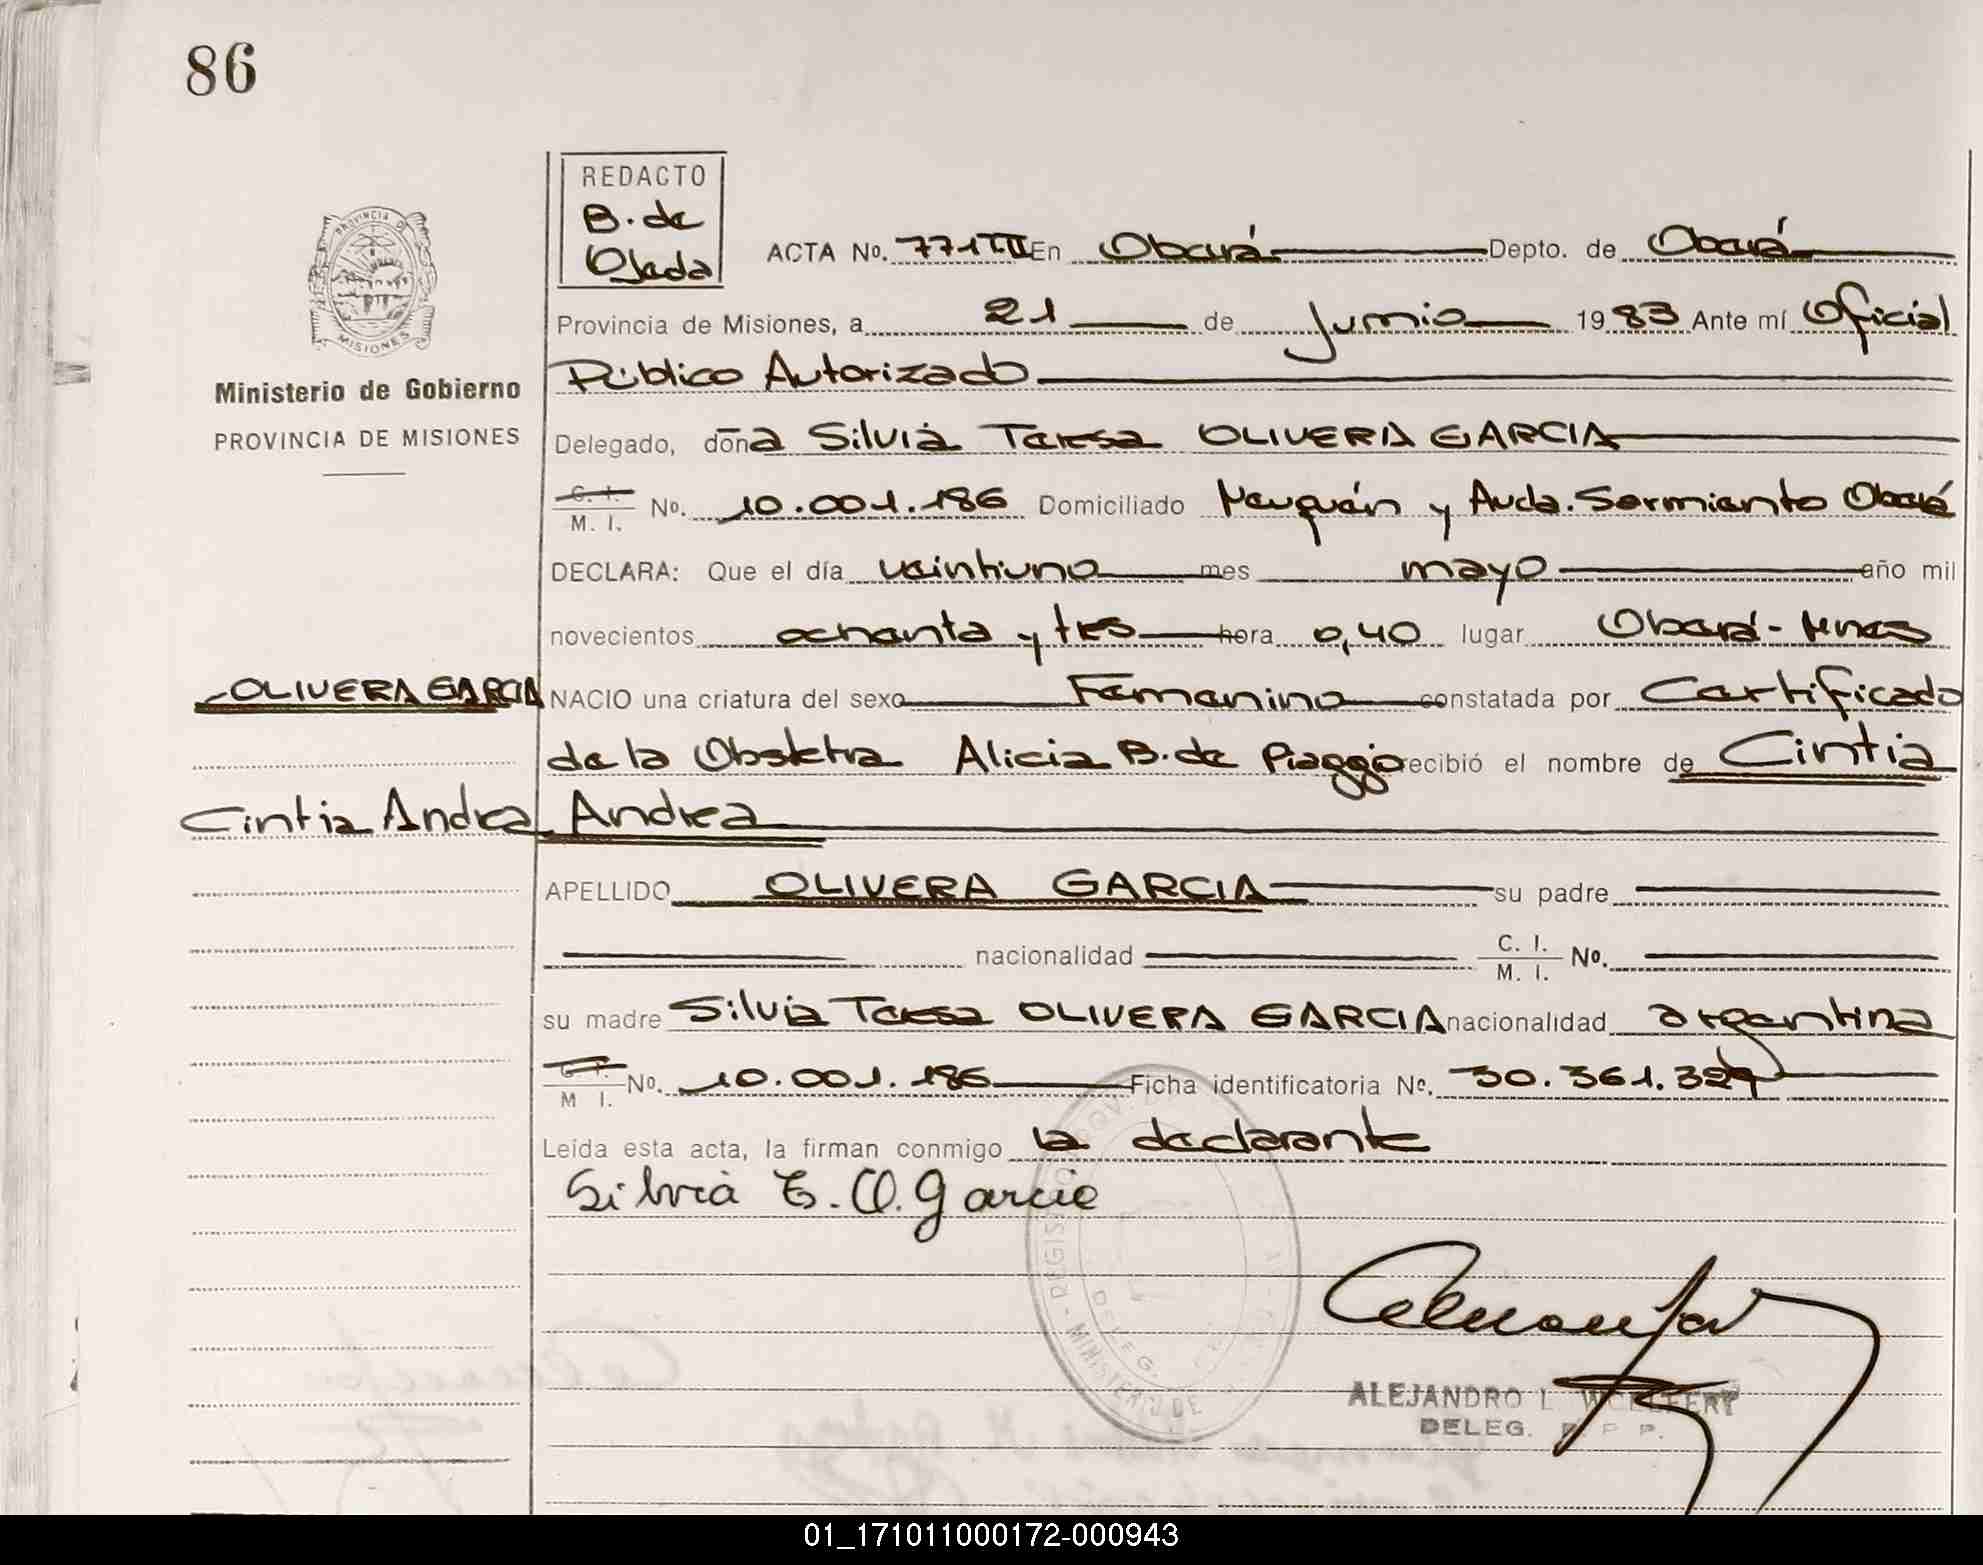 86
REDACTO
B. de
Ojeda
ACTA No. 771 III En Oberá Depto. de Oberá
Provincia de Misiones, a 21 de Junio 1983 Ante mí Oficial
Público Autorizado
PROVINCIA DE
MISIONES
Ministerio de Gobierno
PROVINCIA DE MISIONES
Delegado, doña Silvia Teresa OLIVERA GARCIA
C. I.
M. I. No. 10.001.186 Domiciliado Neuquén y Avda. Sarmiento Oberá
DECLARA: Que el día veintiuno mes mayo año mil
novecientos ochenta y tres hora 0,40 lugar Oberá-Mnes
OLIVERA GARCIA
NACIO una criatura del sexo Femenino constatada por Certificado
de la Obstetra Alicia B. de Piaggio recibió el nombre de Cintia
Cintia Andrea
Andrea
APELLIDO OLIVERA GARCIA su padre
nacionalidad C. I.
M. I. No.
su madre Silvia Teresa OLIVERA GARCIA nacionalidad argentina
C. I.
M I. No. 10.001.186 Ficha identificatoria No. 30.361.329
Leída esta acta, la firman conmigo la declarante
Silvia T. O. Garcia
MINISTERIO DE
DELEG.
ALEJANDRO L
DELEG. P P.
01_171011000172-000943